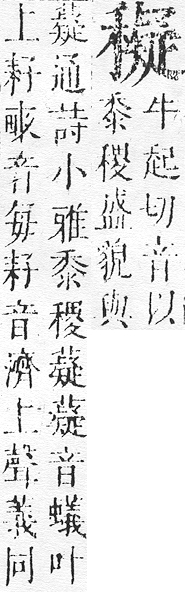 牛起切音以
黍稷盛貌與
薿通詩小雅黍稷薿薿音蟻叶
上耔畝音每耔音濟上聲義同